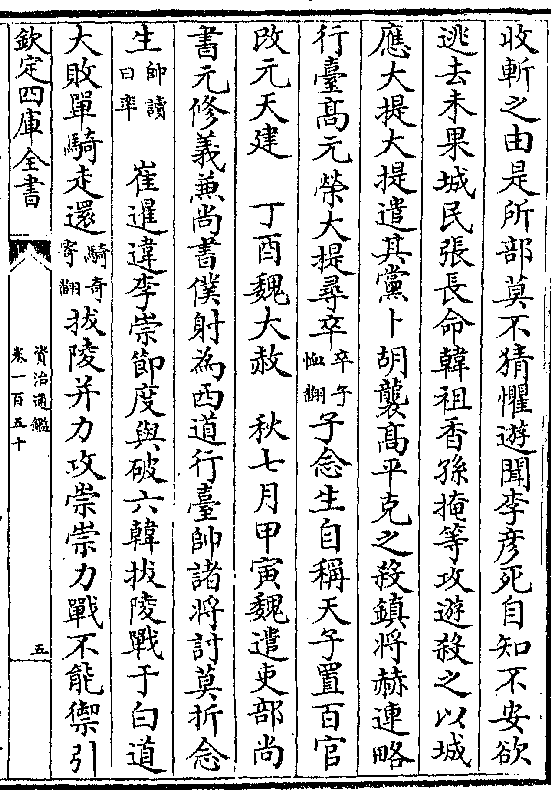 收斬之由是所部莫不猜懼遊聞李彦死自知不安欲
逃去未果城民張長命韓祖香孫掩等攻遊殺之以城
應大提大提遣其黨卜胡襲髙平克之殺鎮將赫連略
行臺髙元榮大提尋卒卒子恤翻子念生自稱天子置百官
改元天建　丁酉魏大赦　秋七月甲寅魏遣吏部尚
書元修義兼尚書僕射為西道行臺帥諸將討莫折念
生帥讀曰率　崔暹違李崇節度與破六韓拔陵戰于白道
大敗單騎走還騎奇寄翻拔陵并力攻崇崇力戰不能禦引
欽定四庫全書
資治通鑑
卷一百五十
五